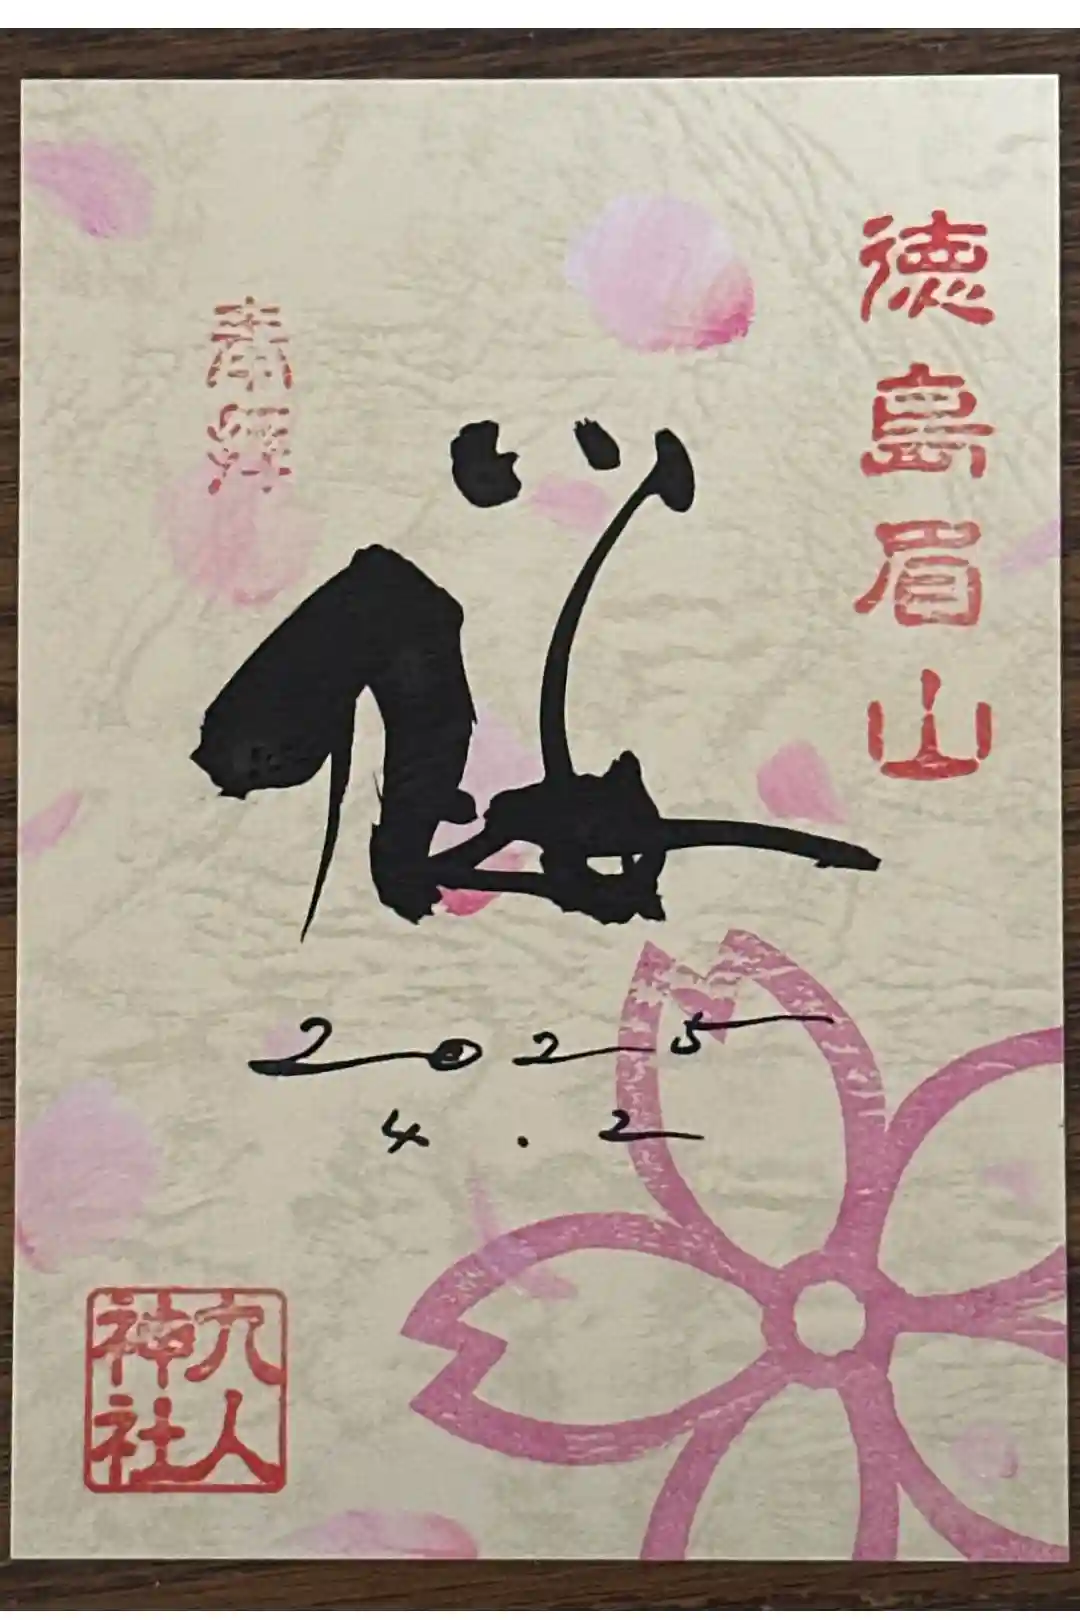 徳島眉山
奉拝
桜
2025
4.2
六人
神社